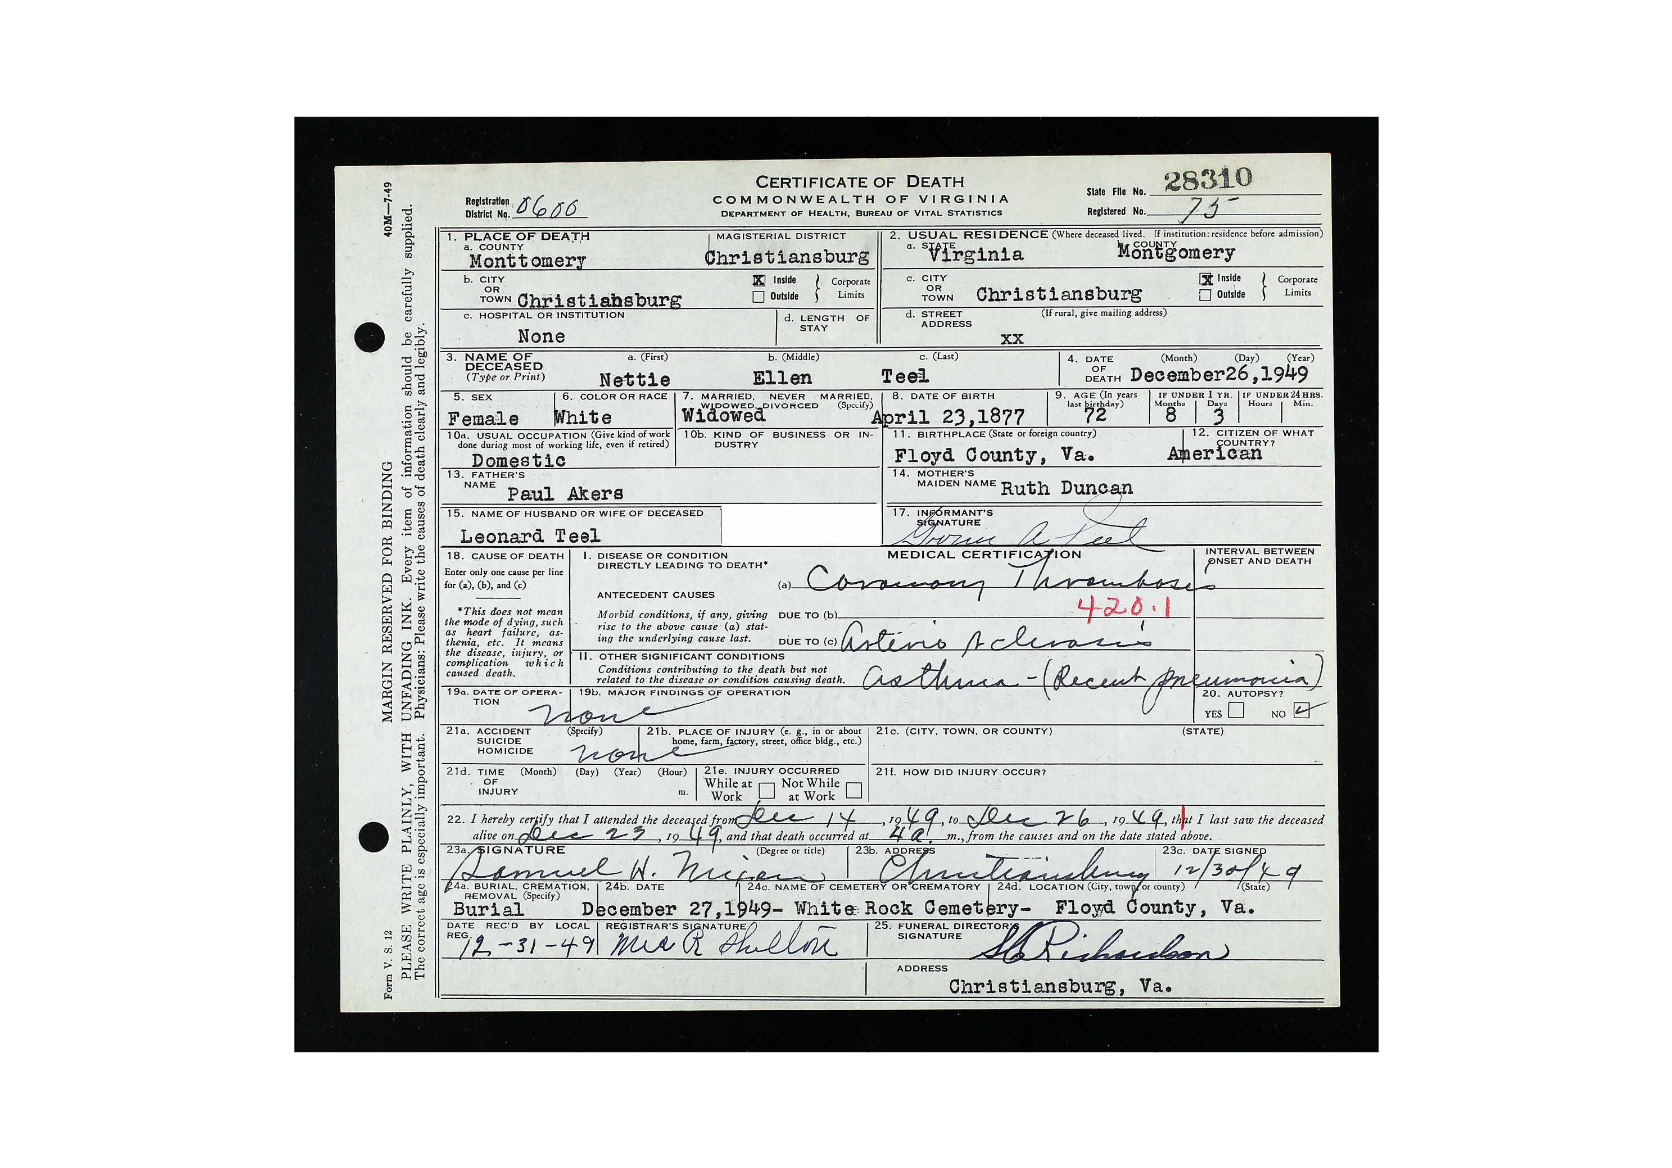 CERTIFICATE OF DEATH
COMMONWEALTH OF VIRGINIA
DEPARTMENT OF HEALTH, BUREAU OF VITAL STATISTICS
Registration District No. 0600
State File No. 28310
Registered No. 75
40M—7-49
MARGIN RESERVED FOR BINDING
PLEASE WRITE PLAINLY, WITH UNFADING INK. Every item of information should be carefully supplied.
The correct age is especially important. Physicians: Please write the causes of death clearly and legibly.
Form V. S. 12
1. PLACE OF DEATH
a. COUNTY
Monttomery
MAGISTERIAL DISTRICT
Christiansburg
2. USUAL RESIDENCE (Where deceased lived. If institution: residence before admission)
a. STATE
Virginia
COUNTY
Montgomery
b. CITY OR TOWN Christiahsburg
X Inside Outside Corporate Limits
c. CITY OR TOWN Christiansburg
X Inside Outside Corporate Limits
c. HOSPITAL OR INSTITUTION
None
d. LENGTH OF STAY
d. STREET ADDRESS (If rural, give mailing address)
xx
3. NAME OF DECEASED (Type or Print)
a. (First) b. (Middle) c. (Last)
Nettie Ellen Teel
4. DATE OF DEATH (Month) (Day) (Year)
December26,1949
5. SEX
Female
6. COLOR OR RACE
White
7. MARRIED, NEVER MARRIED, WIDOWED, DIVORCED (Specify)
Widowed
8. DATE OF BIRTH
April 23,1877
9. AGE (In years last birthday)
72
IF UNDER 1 YR. Months Days
8 3
IF UNDER 24 HRS. Hours Min.
10a. USUAL OCCUPATION (Give kind of work done during most of working life, even if retired)
Domestic
10b. KIND OF BUSINESS OR INDUSTRY
11. BIRTHPLACE (State or foreign country)
Floyd County, Va.
12. CITIZEN OF WHAT COUNTRY?
American
13. FATHER'S NAME
Paul Akers
14. MOTHER'S MAIDEN NAME Ruth Duncan
15. NAME OF HUSBAND OR WIFE OF DECEASED
Leonard Teel
17. INFORMANT'S SIGNATURE
A Teel
18. CAUSE OF DEATH
Enter only one cause per line for (a), (b), and (c)
*This does not mean the mode of dying, such as heart failure, asthenia, etc. It means the disease, injury, or complication which caused death.
MEDICAL CERTIFICATION
INTERVAL BETWEEN ONSET AND DEATH
I. DISEASE OR CONDITION DIRECTLY LEADING TO DEATH*
(a) Coronary Thrombosis
ANTECEDENT CAUSES
Morbid conditions, if any, giving rise to the above cause (a) stating the underlying cause last.
DUE TO (b)
420.1
DUE TO (c) Arterio sclerosis
II. OTHER SIGNIFICANT CONDITIONS
Conditions contributing to the death but not related to the disease or condition causing death.
Asthma - (Recent pneumonia)
19a. DATE OF OPERATION
none
19b. MAJOR FINDINGS OF OPERATION
20. AUTOPSY?
YES NO
21a. ACCIDENT SUICIDE HOMICIDE (Specify)
none
21b. PLACE OF INJURY (e. g., in or about home, farm, factory, street, office bldg., etc.)
21c. (CITY, TOWN, OR COUNTY) (STATE)
21d. TIME OF INJURY (Month) (Day) (Year) (Hour) m.
21e. INJURY OCCURRED
While at Work Not While at Work
21f. HOW DID INJURY OCCUR?
22. I hereby certify that I attended the deceased from Dec 14, 1949, to Dec 26, 1949, that I last saw the deceased
alive on Dec 23, 1949, and that death occurred at 4a m., from the causes and on the date stated above.
23a. SIGNATURE (Degree or title)
Samuel H.
23b. ADDRESS
Christiansburg
23c. DATE SIGNED
12/30/49
24a. BURIAL, CREMATION, REMOVAL (Specify)
Burial
24b. DATE
December 27,1949-
24c. NAME OF CEMETERY OR CREMATORY
White Rock Cemetery-
24d. LOCATION (City, town, or county) (State)
Floyd County, Va.
DATE REC'D BY LOCAL REG.
12-31-49
REGISTRAR'S SIGNATURE
Mrs R Shelton
25. FUNERAL DIRECTOR'S SIGNATURE
Richardson
ADDRESS
Christiansburg, Va.